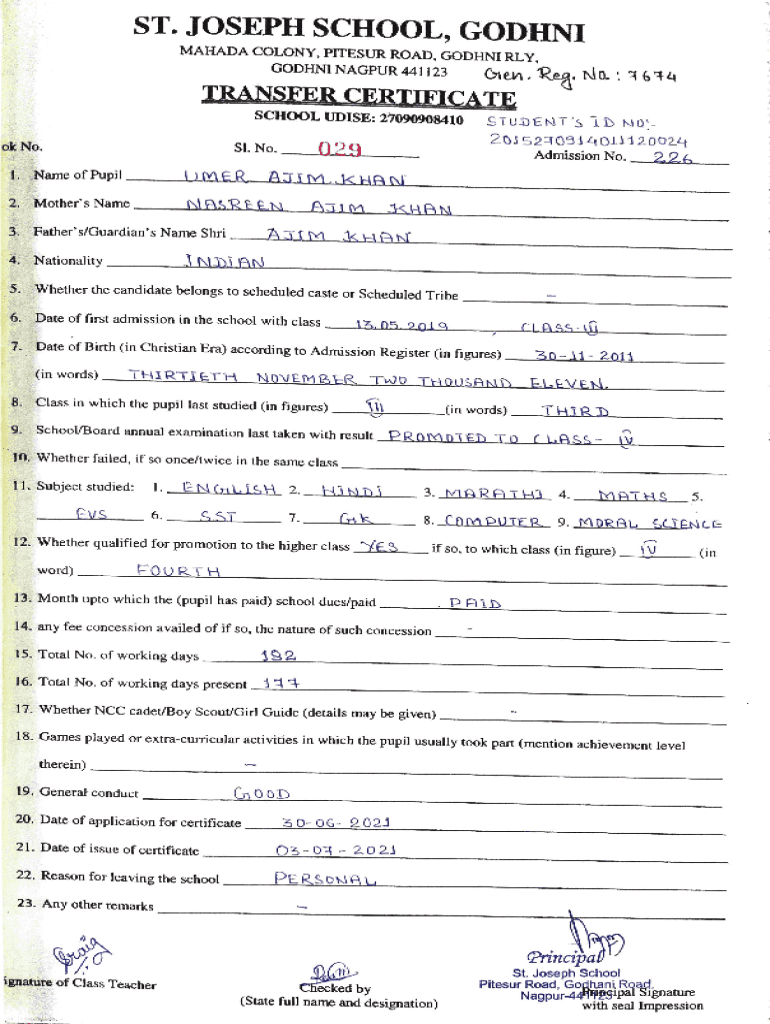 ST. JOSEPH SCHOOL, GODHNI
MAHADA COLONY, PITESUR ROAD, GODHNI RLY,
GODHNI NAGPUR 441123 Gen. Reg. No : 7674
TRANSFER CERTIFICATE
SCHOOL UDISE: 27090908410 STUDENT'S ID NO:-
2015270914011120024
ok No. Sl. No. 029 Admission No. 226
1. Name of Pupil UMER AJIM KHAN
2. Mother's Name NASREEN AJIM KHAN
3. Father's/Guardian's Name Shri AJIM KHAN
4. Nationality INDIAN
5. Whether the candidate belongs to scheduled caste or Scheduled Tribe –
6. Date of first admission in the school with class 13.05.2019, CLASS-III
7. Date of Birth (in Christian Era) according to Admission Register (in figures) 30-11-2011
(in words) THIRTIETH NOVEMBER TWO THOUSAND ELEVEN.
8. Class in which the pupil last studied (in figures) III (in words) THIRD
9. School/Board annual examination last taken with result PROMOTED TO CLASS- IV
10. Whether failed, if so once/twice in the same class
11. Subject studied: 1. ENGLISH 2. HINDI 3. MARATHI 4. MATHS 5.
EVS 6. SST 7. GK 8. COMPUTER 9. MORAL SCIENCE
12. Whether qualified for promotion to the higher class YES if so, to which class (in figure) IV (in
word) FOURTH
13. Month upto which the (pupil has paid) school dues/paid PAID
14. any fee concession availed of if so, the nature of such concession -
15. Total No. of working days 192
16. Total No. of working days present 177
17. Whether NCC cadet/Boy Scout/Girl Guide (details may be given) -
18. Games played or extra-curricular activities in which the pupil usually took part (mention achievement level
therein) –
19. General conduct GOOD
20. Date of application for certificate 30-06-2021
21. Date of issue of certificate 03-07-2021
22. Reason for leaving the school PERSONAL
23. Any other remarks –
Principal
St. Joseph School
Pitesur Road, Godhani Road,
Nagpur-441123
ignature of Class Teacher Checked by Principal Signature
(State full name and designation) with seal Impression